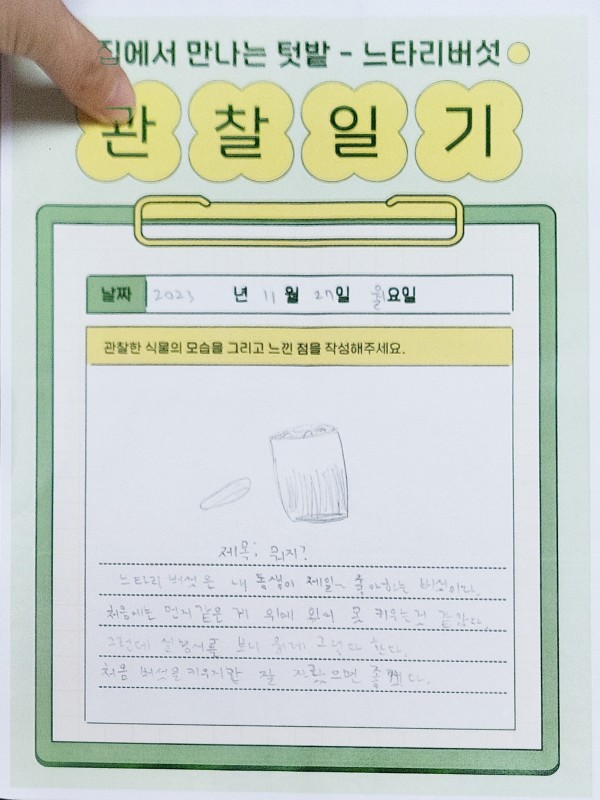 집에서 만나는 텃밭 - 느타리버섯
관찰일기
날짜 2023 년 11 월 27일 월요일
관찰한 식물의 모습을 그리고 느낀 점을 작성해주세요.
제목: 뭐지?
느타리 버섯은 내 동생이 제일 좋아하는 버섯이다.
처음에는 먼지 같은 게 위에 있어 못 키우는 것 같았다.
그런데 설명서를 보니 원래 그렇다 한다.
처음 버섯을 키우지만 잘 자랐으면 좋겠다.